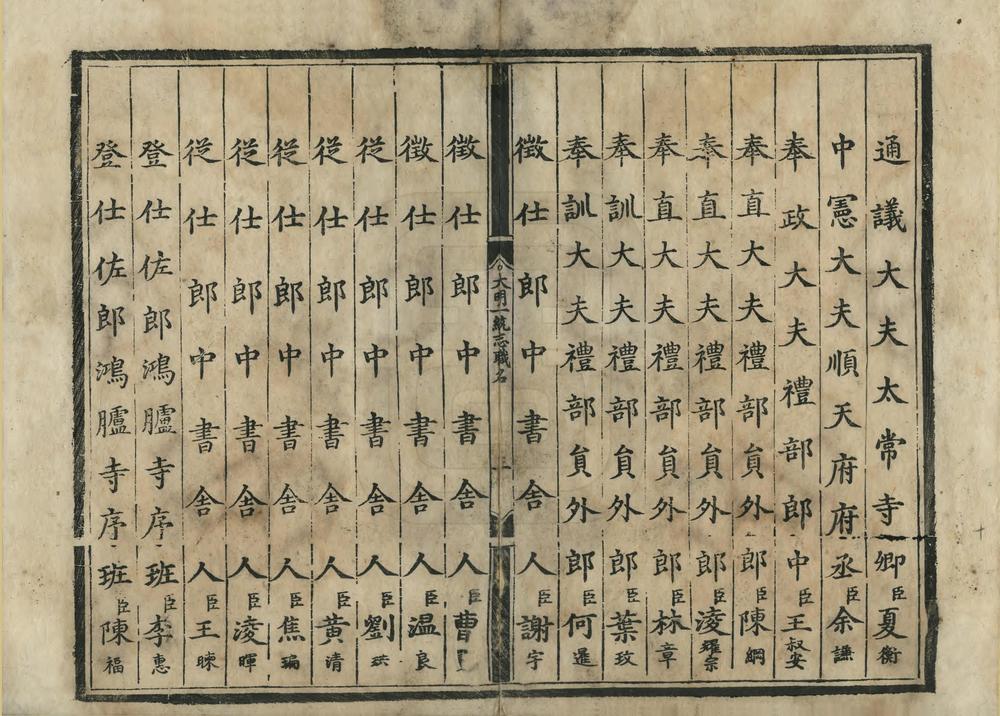 通議大夫太常寺卿臣夏衡
中憲大夫順天府府丞臣余謙
奉政大夫禮部郎中臣王叔安
奉直大夫禮部員外郎臣陳綱
奉直大夫禮部員外郎臣淩耀宗
奉直大夫禮部員外郎臣林章
奉訓大夫禮部員外郎臣葉玫
奉訓大夫禮部員外郎臣何暹
徵仕郎中書舍人臣謝宇
大明一統志職名
三
徵仕郎中書舍人臣曹
徵仕郎中書舍人臣温良
從仕郎中書舍人臣劉珙
從仕郎中書舍人臣黄清
從仕郎中書舍人臣焦瑞
從仕郎中書舍人臣淩暉
從仕郎中書舍人臣王暕
登仕佐郎鴻臚寺序班臣李惠
登仕佐郎鴻臚寺序班臣陳福